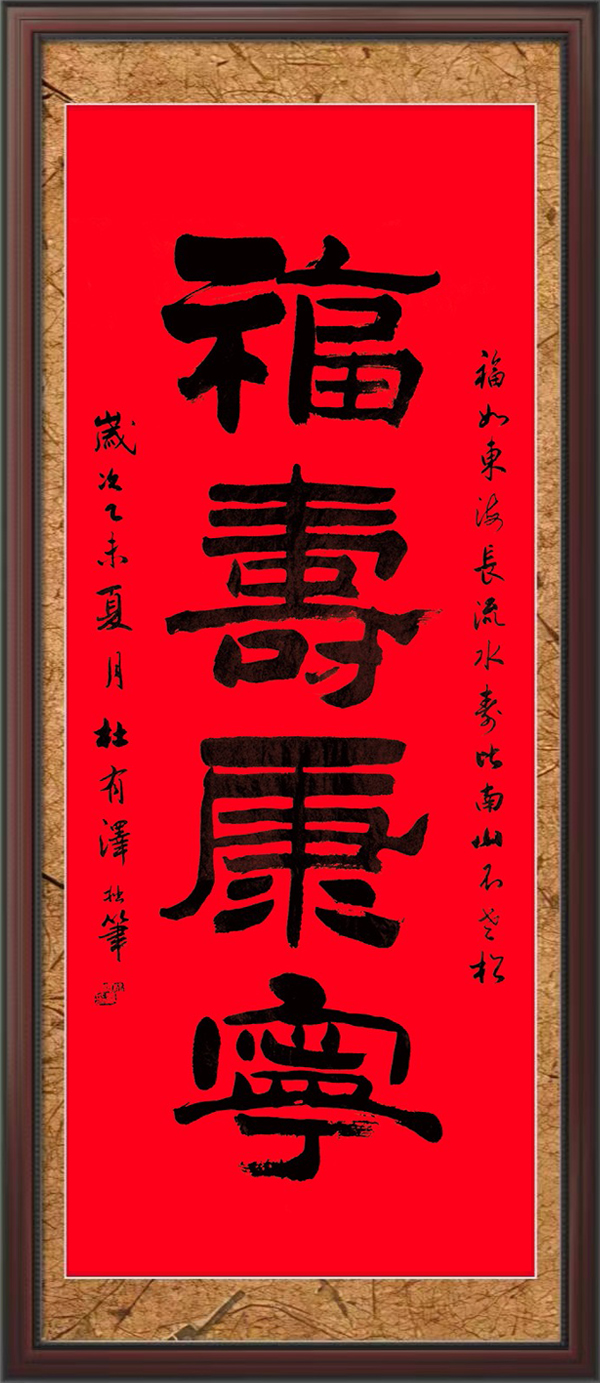 福如東海長流水壽比南山不老松
福壽康寧
歲次乙未夏月杜有澤拙筆